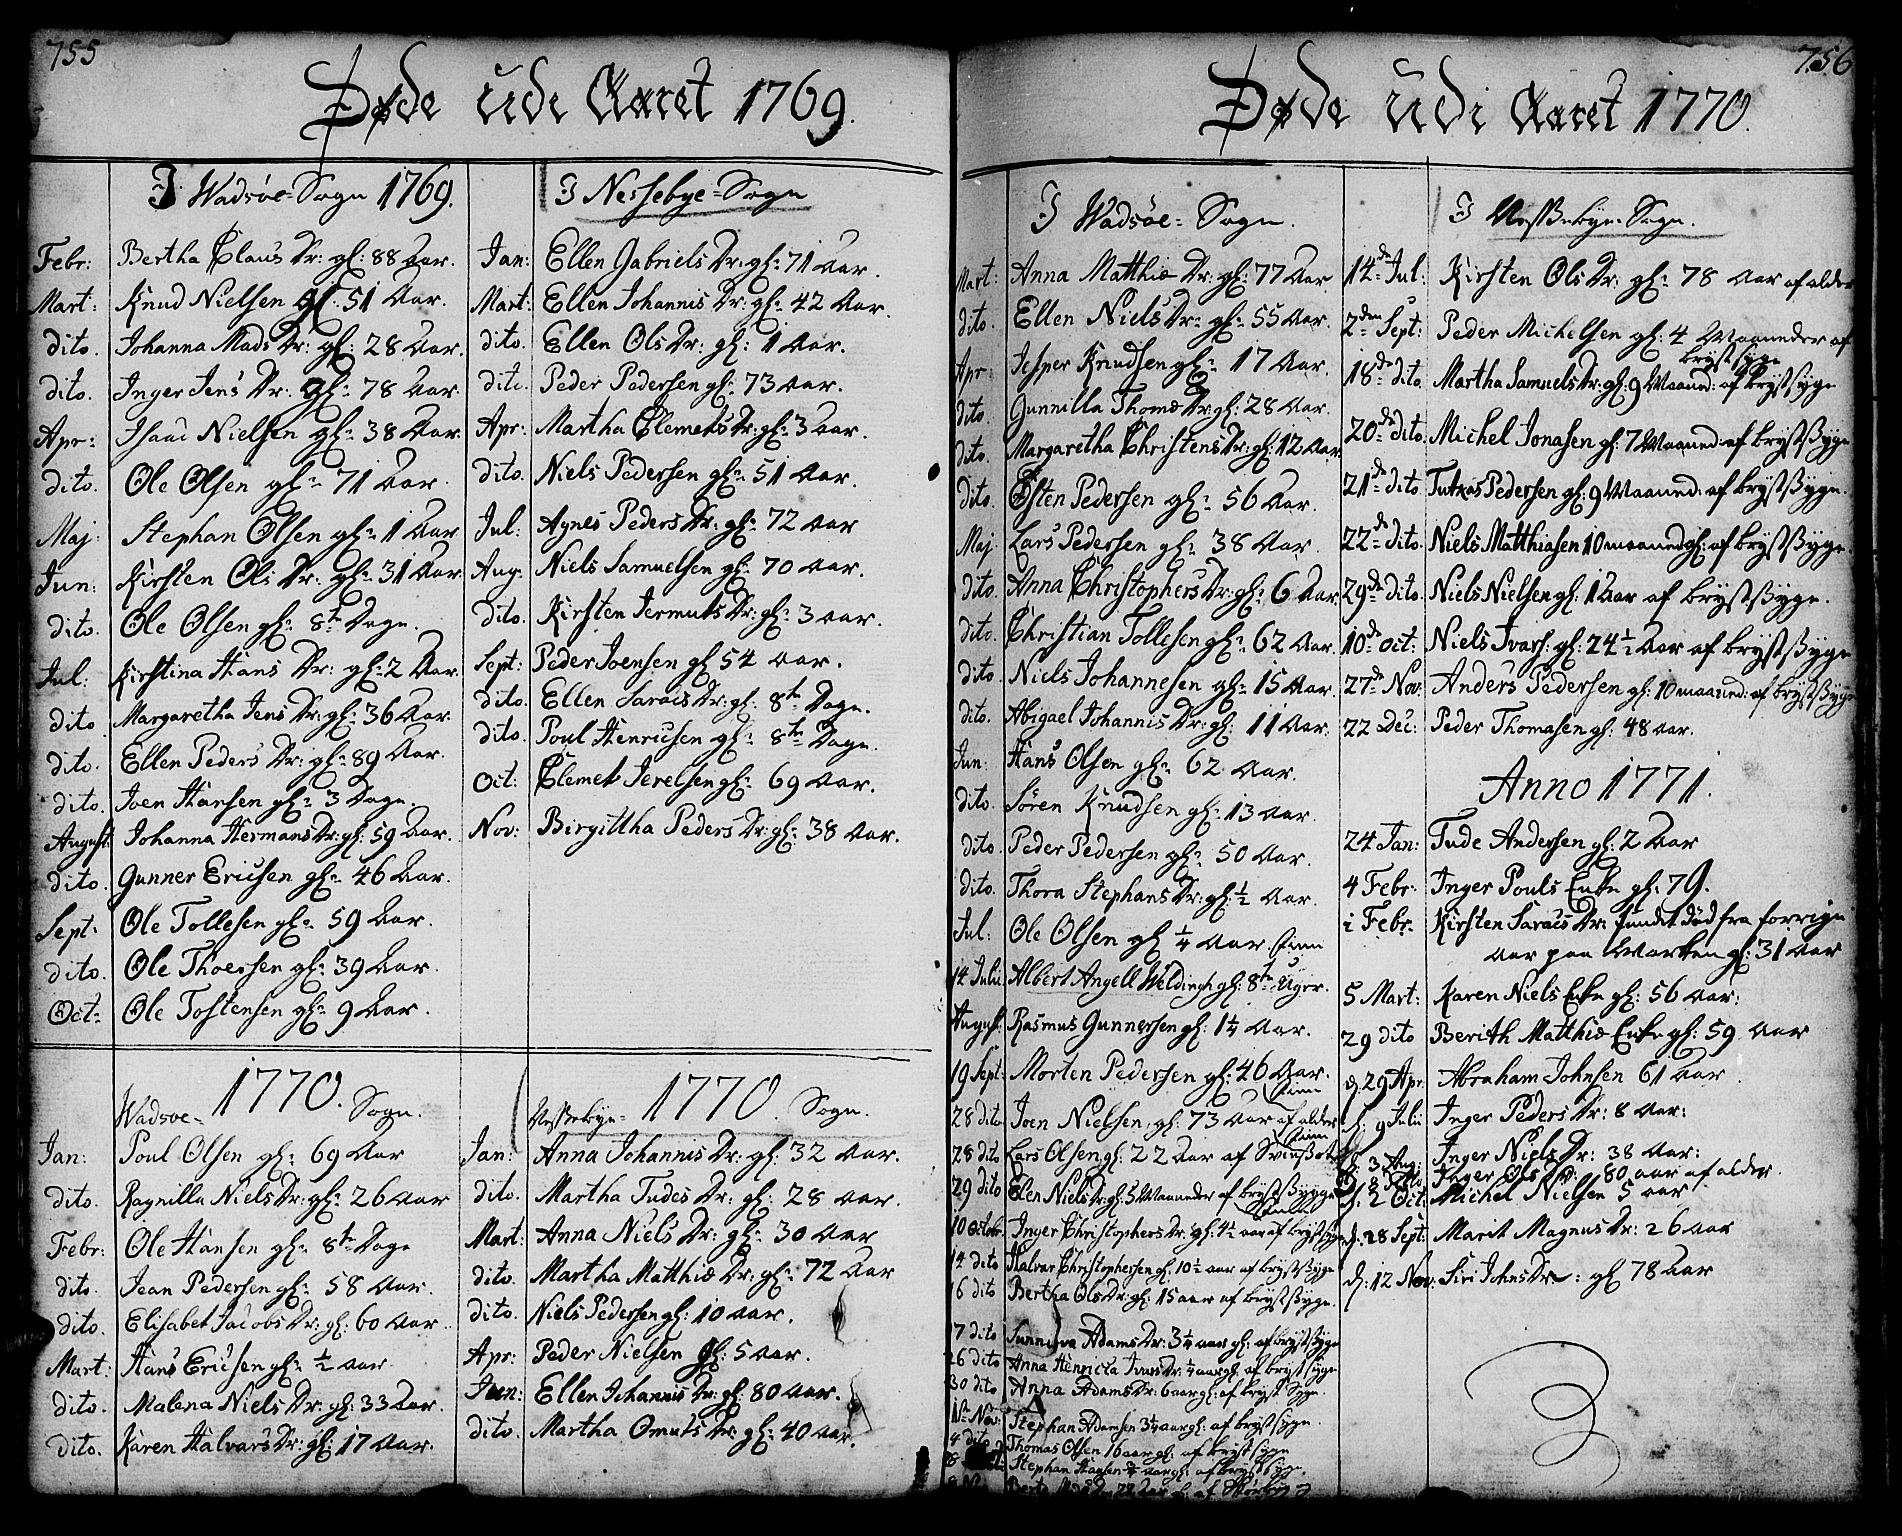 755
Døde udi Aaret 1769.
I Wadsøe-Sogn 1769.
Febr: Bertha Claus Dr: gl: 88 Aar.
Mart: Knud Nielsen gl: 51 Aar.
dito. Johanna Mads Dr: gl: 28 Aar.
dito. Inger Jens Dr: gl: 78 Aar.
Apr: Isaac Nielsen gl: 38 Aar.
dito. Ole Olsen gl: 71 Aar.
Maj: Stephan Olsen gl: 1 Aar
Jun: Kirsten Ols Dr: gl: 31 Aar
dito. Ole Olsen gl: 8te Dage.
Jul: Kirstina Hans Dr: gl: 2 Aar
dito Margaretha Jens Dr: gl: 36 Aar.
dito. Ellen Peders Dr: gl: 89 Aar.
dito. Joen Hansen gl: 3 Dage.
August: Johanna Hermans Dr: gl: 59 Aar.
dito. Gunner Ericksen gl: 46 Aar.
Sept: Ole Tollefsen gl: 59 Aar.
dito. Ole Thoersen gl: 39 Aar.
Oct: Ole Tostensen gl: 9 Aar.
I Nessebye-Sogn
Jan: Ellen Gabriels Dr: gl: 71 Aar.
Mart: Ellen Johannis Dr: gl: 42 Aar.
dito. Ellen Ols Dr: gl: 1 Aar.
dito. Peder Pedersen gl: 73 Aar.
Apr: Martha Clemets Dr: gl: 3 Aar.
dito. Niels Pedersen gl: 51 Aar.
Jul: Agnes Peders Dr: gl: 72 Aar
Aug. Niels Samuelsen gl: 70 Aar.
dito. Kirsten Jermuts Dr: gl: 3 Aar.
Sept: Peder Joensen gl 54 Aar.
dito. Ellen Saraes Dr: gl: 8te Dage.
dito. Poul Henricsen gl: 8te Dage.
Oct: Clemet Jerelsen gl: 69 Aar.
Nov: Birgittha Peders Dr: gl: 38 Aar.
Wadsøe- 1770. Sogn.
Jan: Poul Olsen gl: 69 Aar
dito. Ragnilla Niels Dr: gl: 26 Aar
Febr: Ole Hansen gl: 8te Dage
dito. Jean Pedersen gl: 58 Aar.
dito. Elisabet Jacobs Dr: gl: 60 Aar.
Mart: Hans Ericsen gl: ½ Aar
dito. Malena Niels Dr: gl: 33 Aar.
dito. Karen Halvars Dr: gl: 17 Aar.
Nessebye- 1770. Sogn.
Jan: Anna Johannis Dr: gl: 32 Aar.
dito. Martha Tudes Dr: gl: 28 Aar.
Mart: Anna Niels Dr: gl: 30 Aar
dito. Martha Matthiæ Dr: gl: 72 Aar
dito. Niels Pedersen gl: 10 Aar.
Apr: Peder Nielsen gl: 5 Aar.
Jun: Ellen Johannis Dr: gl: 80 Aar.
dito. Martha Omuts Dr: gl: 40 Aar.
756
Døde udi Aaret 1770.
I Wadsøe-Sogn.
Mart: Anna Matthiæ Dr: gl: 77 Aar.
dito. Ellen Niels Dr: gl: 55 Aar.
Apr: Jesper Knudsen gl: 17 Aar.
dito Gunnilla Thomæ Dr: gl: 28 Aar.
dito. Margaretha Christens Dr: gl: 12 Aar.
dito. Østen Pedersen gl: 56 Aar.
Maj. Lars Pedersen gl: 38 Aar.
dito. Anna Christophers Dr: gl: 6 Aar.
dito. Christian Tollesen gl: 62 Aar.
dito. Niels Johannesen gl: 15 Aar.
dito. Abigael Johannis Dr: gl: 11 Aar.
Jun: Hans Olsen gl: 62 Aar.
dito. Søren Knudsen gl: 13 Aar.
dito. Peder Pedersen gl: 50 Aar.
dito. Thora Stephans Dr: gl: ½ Aar.
Jul: Ole Olsen gl ¼ Aar
14 Julii Albert Angell Weldingh gl: 8te Uger.
August Rasmus Gunnersen gl: 1¼ Aar.
19 Sept: Morten Pedersen gl: 46 Aar.
28 dito Joen Nielsen, gl: 73 Aar af alder
28 dito Lars Olsen gl: 22 Aar af
29 dito Elen Niels Dr: gl: 5 Maaneder af brystsyge
10 Octobr: Inger Christophers Dr: gl: 4½ aar af brystsyge
14 dito Halvor Christophersen gl: 10½ aar af brystsyge
16 dito Bertha Ols Dr: gl: 15 aar af brystsyge.
17 dito Sunniva Adams Dr: 3¼ aar gl: af brystsyge
26 dito Anna Henricka Ivars Dr: ¼ aar gl: af brystsyge
30 dito Anna Adams Dr: 6 aar gl: af bryst Syge.
1ste Nov: Stephan Adamsen 3¼ aar gl: af brystsyge.
4 dito Thomas Olsen 16 aar gl: af brystsyge
Stephan Hansen ¾ aar gl: af brystsyge.
I Nessebye-Sogn.
14de Jul: Kirsten Ols Dr: gl: 78 Aar af alder
2den Sept: Peder Michelsen gl: 4 Maaneder af
brystsyge
18de dito. Martha Samuels Dr: gl: 9 Maaned: af brystsyge
20de dito. Michel Jonasen gl: 7 Maaned: af brystsyge
21de dito Pedersen gl: 9 Maaned: af brystsyge.
22de dito. Niels Matthiasen 10 maaned gl: af brystsyge.
29de dito. Niels Nielsen gl: 1 Aar af brystsyge.
10de Oct: Niels Ivars: gl: 24½ Aar af brystsyge
27de Nov: Anders Pedersen gl: 10 maaned: af brystsyge
22 Dec: Peder Thomasen gl: 48 Aar.
Anno 1771.
24 Jan: Tude Andersen gl: 2 Aar
4 Febr: Inger Pouls Enke gl: 79.
i Febr: Kirsten Saraes Dr: fundet død fra forrige
aar paa Marken gl: 31 Aar
5 Mart: Karen Niels Enke gl: 56 Aar:
29 dito Berith Matthiæ Enke gl: 59 Aar
d: 29 Apr: Abraham Johnsen 61 Aar
d: 9 Julii Inger Peders Dr: 8 Aar:
d: 3 Aug: Inger Niels Dr: 38 Aar:
d: 8 dito Inger Ols Dr: 80 aar af alder.
d: 2 Oct: Michel Nielsen 5 aar
d: 28 Sept: Marit Magnus Dr: 26 Aar
d: 12 Nov: Siri Johns Dr: gl 78 Aar